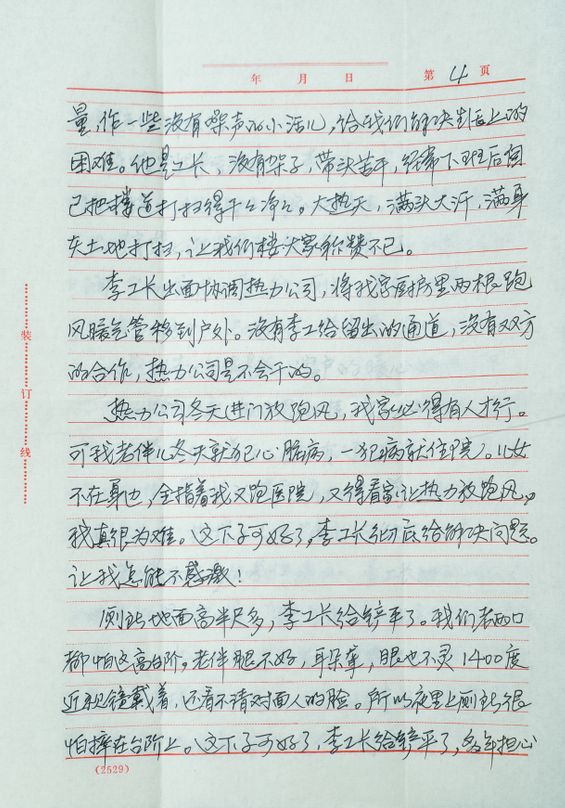 年 月 日 第4页
量,作一些没有噪声的小活儿,给我们解决生活上的
困难。他是工长,没有架子,带头苦干,经常下班后自
己把楼道打扫得干干净净。大热天,满头大汗,满身
灰土地打扫,让我们楼大家称赞不已。
李工长出面协调热力公司,将我家厨房里两根跑
风暖气管移到户外。没有李工给留出的通道,没有双方
的合作,热力公司是不会干的。
热力公司冬天进门放跑风,我家必得有人才行。
可我老伴儿冬天就犯心脏病,一犯病就住院。儿女
不在身边,全指着我又跑医院,又得看家让热力放跑风,
我真很为难。这下子可好了,李工长彻底给解决问题。
让我怎能不感激!
厕所地面高半尺多,李工长给铲平了。我们老两口
都怕这高台阶。老伴腿不好,耳朵聋,眼也不灵1400度
近视镜戴着,还看不清对面人的脸。所以夜里上厕所很
怕摔在台阶上。这下子可好了,李工长给铲平了,多年担心
装
订
线
(2529)